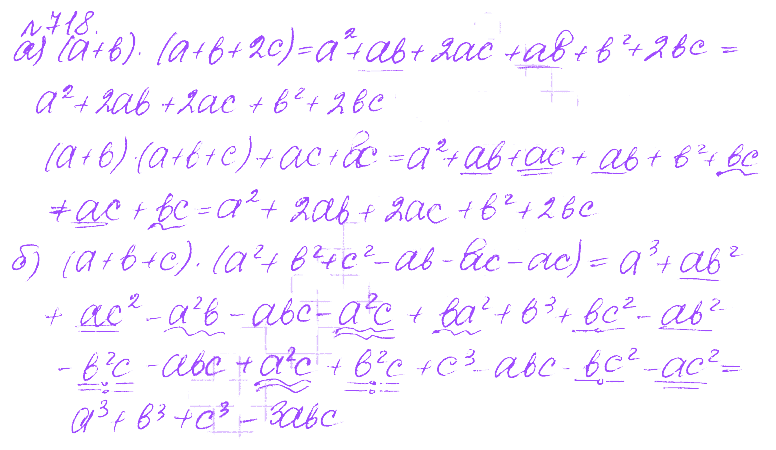 №718.
а) (a+b)·(a+b+2c)=a²+ab+2ac+ab+b²+2bc=
a²+2ab+2ac+b²+2bc
(a+b)·(a+b+c)+ac+bc=a²+ab+ac+ab+b²+bc
+ac+bc=a²+2ab+2ac+b²+2bc
б) (a+b+c)·(a²+b²+c²-ab-bc-ac)=a³+ab²
+ac²-a²b-abc-a²c+ba²+b³+bc²-ab²-
-b²c-abc+a²c+b²c+c³-abc-bc²-ac²=
a³+b³+c³-3abc